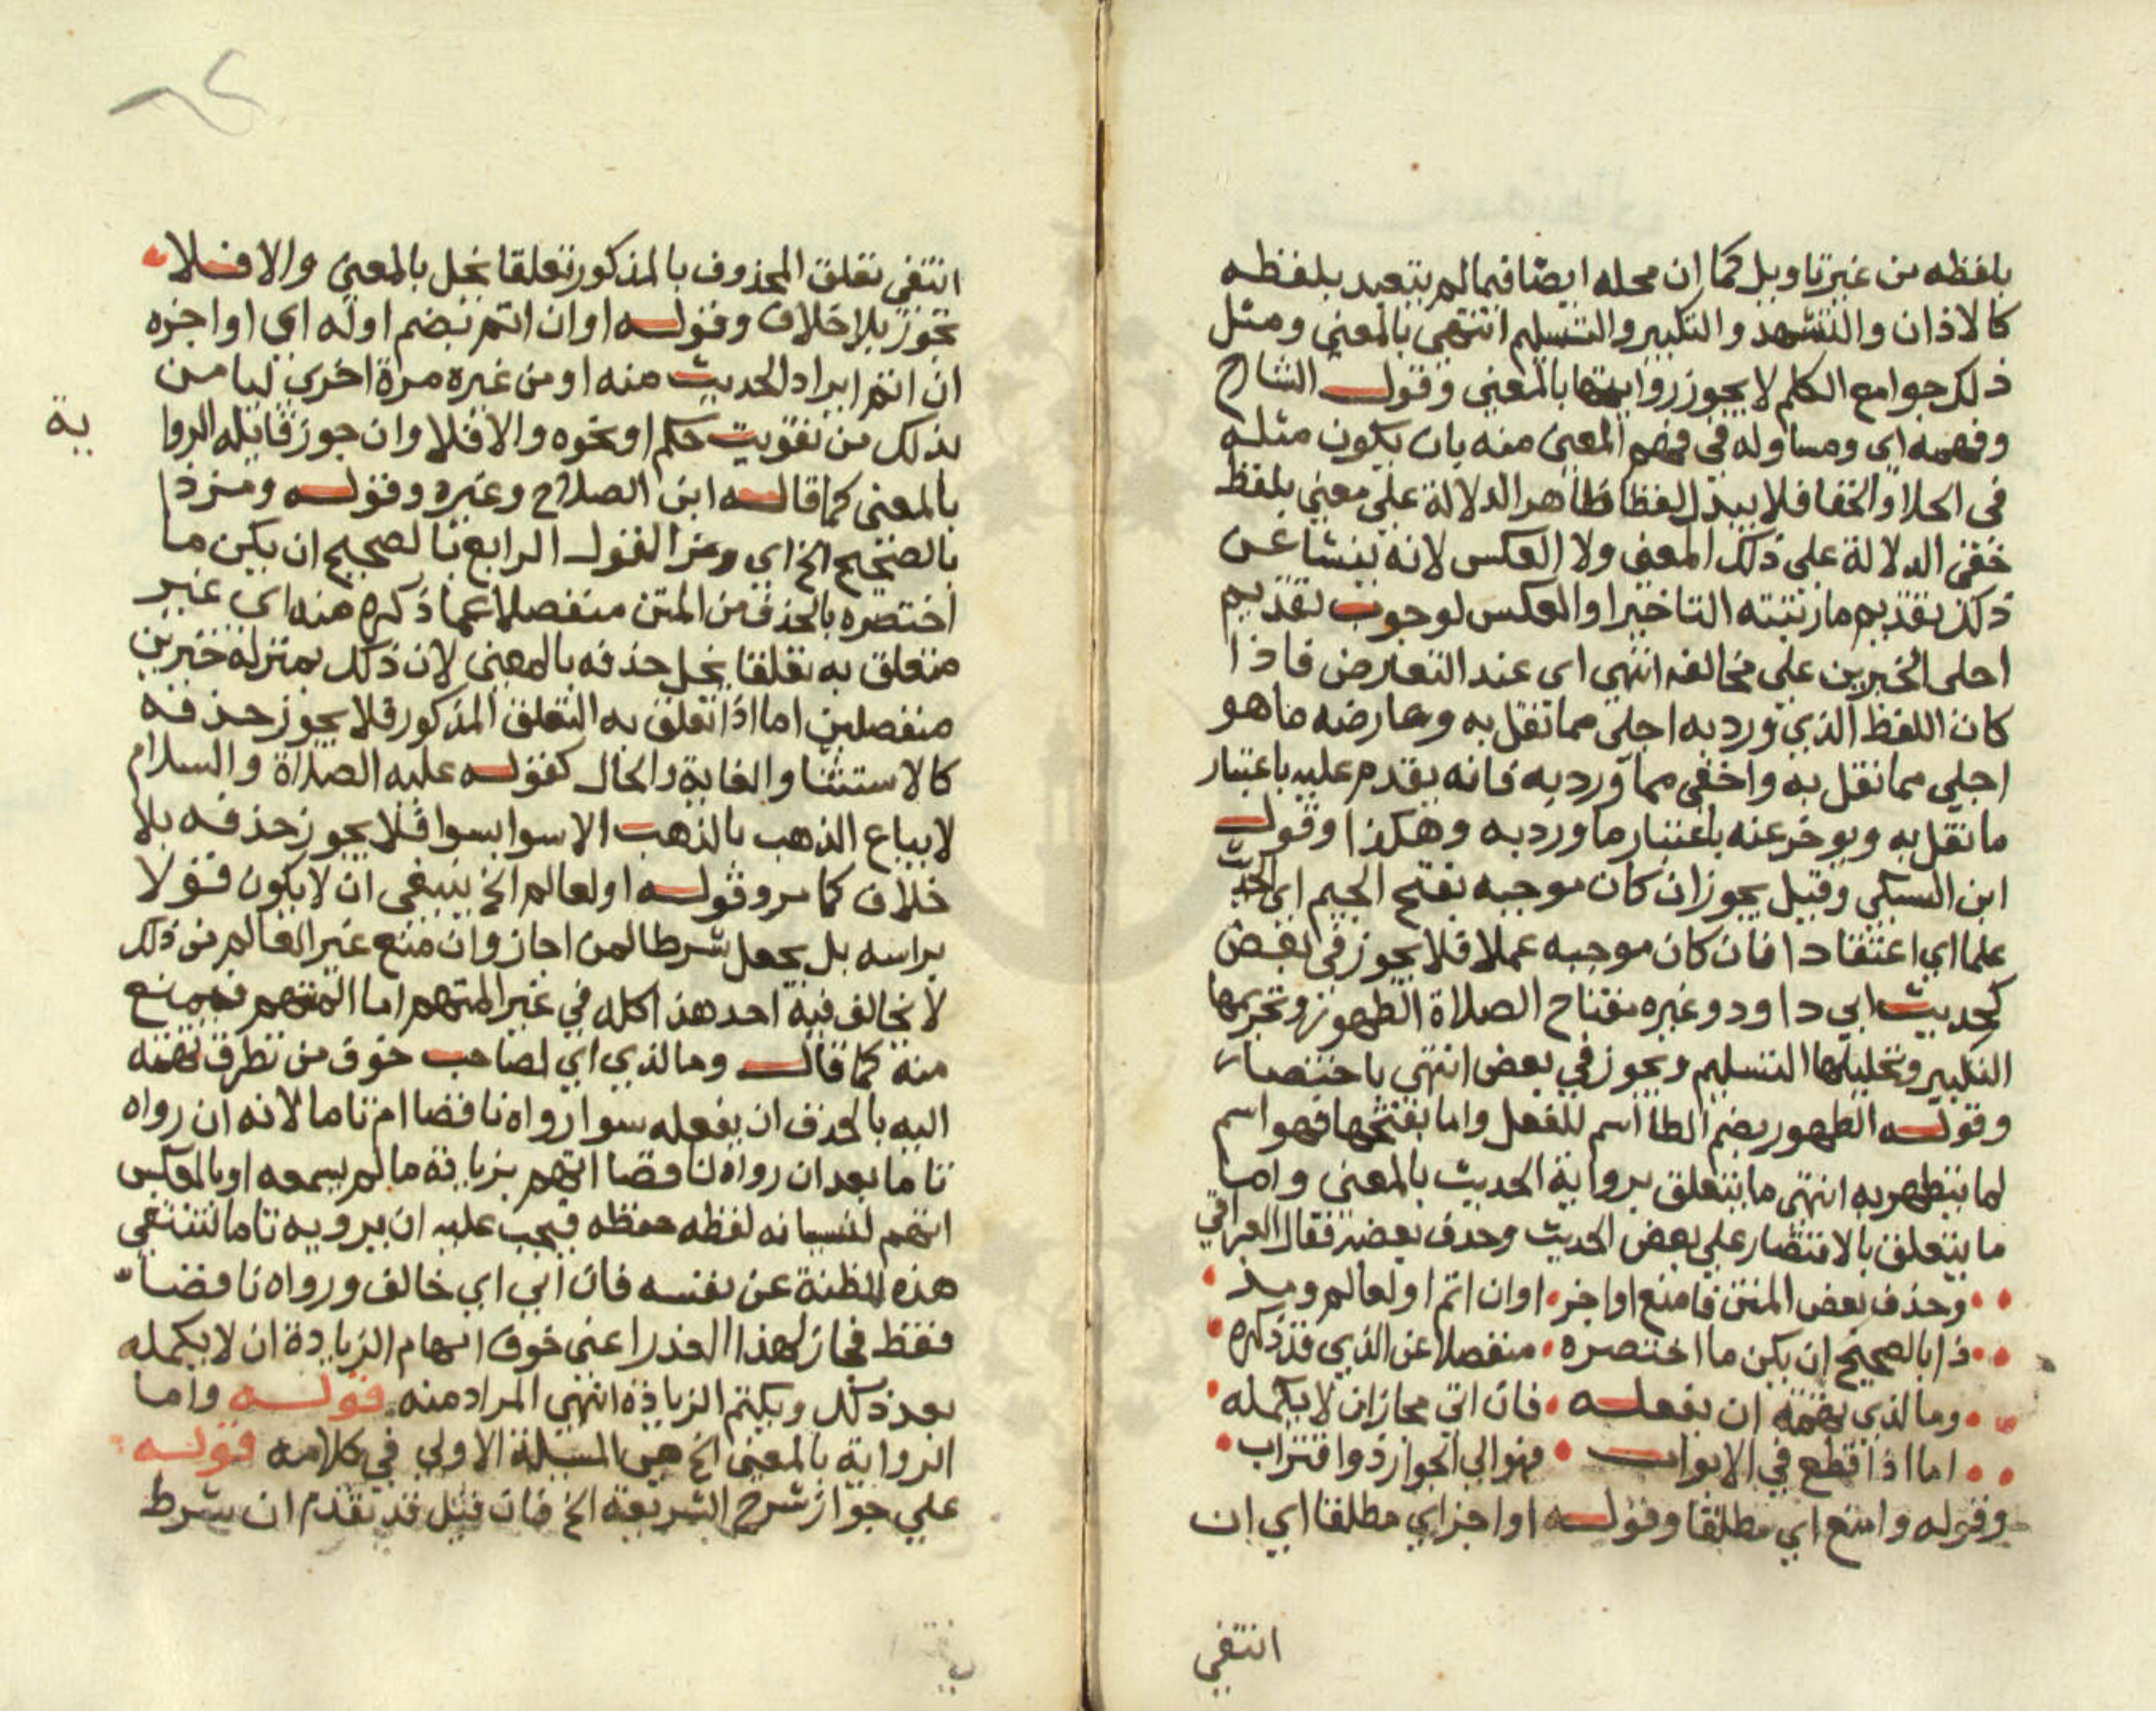 بلفظه من غير تاويل كما ان محله ايضا فيما لم يتعبد بلفظه
كالاذان والتشهد والتكبير والتسليم انتهى بالمعنى ومثل
ذلك جوامع الكلم لا يجوز روايتها بالمعنى وقوله الشارح
وفهمه اى ومساو له في فهم المعنى منه بان يكون مثله
في الجلا والخفا فلا يبدل لفظا ظاهر الدلالة على معنى بلفظ
خفى الدلالة على ذلك المعنى ولا العكس لانه ينشا عن
ذلك تقديم ما رتبته التاخير او العكس لوجوب تقديم
اجلى الخبرين على مخالفه انتهى اى عند التعارض فاذا
كان اللفظ الذي ورد به اجلى مما نقل به وعارضه ما هو
اجلى مما نقل به واخفى مما ورد به فانه يقدم عليه باعتبار
ما نقل به ويوخر عنه باعتبار ما ورد به وهكذا وقوله
ابن السبكى وقيل يجوز ان كان موجبه بفتح الجيم اى الحديث
علما اي اعتقادا فان كان موجبه عملا فلا يجوز في بعض
كحديث ابي داود وغيره مفتاح الصلاة الطهور وتحريمها
التكبير وتحليلها التسليم ويجوز في بعض انتهى باختصار
وقوله الطهور بضم الطا اسم للفعل واما بفتحها فهو اسم
لما يتطهر به انتهى ما يتعلق برواية الحديث بالمعنى واما
ما يتعلق بالاقتصار على بعض الحديث وحذف بعضه فقال العراقي
وحذف بعض المتن فامنع او اجز • او ان اتم او لعالم ومز
ذا بالصحيح ان يكن ما اختصره • منفصلا عن الذي قد ذكره
وما لذي تهمة ان يفعله • فان ابى مجاز ان لا يكمله
اما اذا قطع في الابواب • فهو الى الجواز ذو اقتراب
وقوله وامنع اي مطلقا وقوله او اجز اي مطلقا اي ان
انتفى
انتفى تعلق المحذوف بالمذكور تعلقا يخل بالمعنى والا فلا
يجوز بلا خلاف وقوله او ان اتم بضم اوله اي او اجزه
ان اتم ايراد الحديث منه او من غيره مرة اخرى ليامن
بذلك من تفويت حكم او نحوه والا فلا وان جوز قايله الروا
ية
بالمعنى كما قاله ابن الصلاح وغيره وقوله ومز ذا
بالصحيح الخ اي ومز القول الرابع بالصحيح ان يكن ما
اختصره بالحذف من المتن منفصلا عما ذكره منه اى غير
متعلق به تعلقا يخل حذفه بالمعنى لان ذلك بمنزلة خبرين
منفصلين اما اذا تعلق به التعلق المذكور فلا يجوز حذفه
كالاستثنا والغاية والحال كقوله عليه الصلاة والسلام
لا يباع الذهب بالذهب الا سوا بسوا فلا يجوز حذفه بلا
خلاف كما مر وقوله او لعالم الخ ينبغى ان لا يكون قولا
براسه بل يجعل شرطا لمن اجاز وان منع غير العالم من ذلك
لا يخالف فيه احد هذا كله في غير المتهم اما المتهم فيمنع
منه كما قال وما لذي اي لصاحب خوف من تطرق تهمة
اليه بالحذف ان يفعله سوا رواه ناقصا ام تاما لانه ان رواه
تاما بعد ان رواه ناقصا اتهم بزيادة ما لم يسمعه او بالعكس
اتهم لنسيانه لفظه حفظه فيجب عليه ان يرويه تاما لتنتفى
هذه المظنة عن نفسه فان ابى اي خالف ورواه ناقصا
فقط فجاز لهذا العذر اعنى خوف اتهام الزيادة ان لا يكمله
بعد ذلك ويكتم الزيادة انتهى المراد منه قوله واما
الرواية بالمعنى الخ هى المسيلة الاولى في كلامه قوله
على جواز شرح الشريعة الخ فان قيل قد تقدم ان شرط